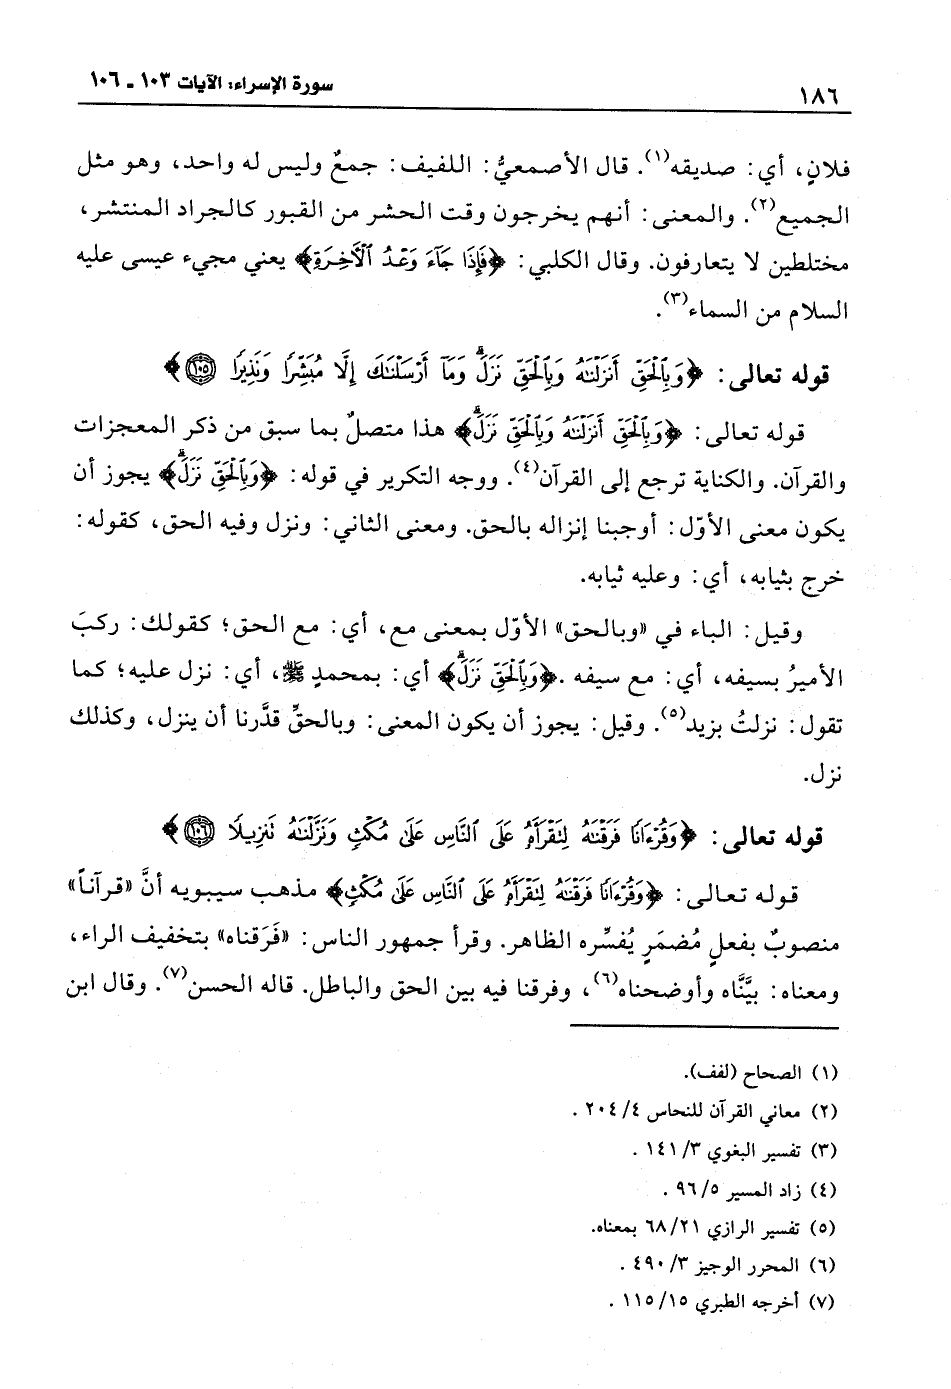 ١٨٦ سورة الإسراء: الآيات ١٠٣ ـ ١٠٦
فلانٍ، أي: صديقه(١). قال الأصمعيُّ: اللفيف: جمعٌ وليس له واحد، وهو مثل
الجميع(٢). والمعنى: أنهم يخرجون وقت الحشر من القبور كالجراد المنتشر،
مختلطين لا يتعارفون. وقال الكلبي: ﴿فَإِذَا جَآءَ وَعۡدُ ٱلۡأٓخِرَةِ﴾ يعني مجيء عيسى عليه
السلام من السماء(٣).
قوله تعالى: ﴿وَبِٱلۡحَقِّ أَنزَلۡنَٰهُ وَبِٱلۡحَقِّ نَزَلَۗ وَمَآ أَرۡسَلۡنَٰكَ إِلَّا مُبَشِّرٗا وَنَذِيرٗا ١٠٥﴾
قوله تعالى: ﴿وَبِٱلۡحَقِّ أَنزَلۡنَٰهُ وَبِٱلۡحَقِّ نَزَلَۗ﴾ هذا متصلٌ بما سبق من ذكر المعجزات
والقرآن. والكناية ترجع إلى القرآن(٤). ووجه التكرير في قوله: ﴿وَبِٱلۡحَقِّ نَزَلَۗ﴾ يجوز أن
يكون معنى الأوّل: أوجبنا إنزاله بالحق. ومعنى الثاني: ونزل وفيه الحق، كقوله:
خرج بثيابه، أي: وعليه ثيابه.
وقيل: الباء في «وبالحق» الأوّل بمعنى مع، أي: مع الحق؛ كقولك: ركبَ
الأميرُ بسيفه، أي: مع سيفه .﴿وَبِٱلۡحَقِّ نَزَلَۗ﴾ أي: بمحمدٍ ﷺ، أي: نزل عليه؛ كما
تقول: نزلتُ بزيد(٥). وقيل: يجوز أن يكون المعنى: وبالحقِّ قدَّرنا أن ينزل، وكذلك
نزل.
قوله تعالى: ﴿وَقُرۡءَانٗا فَرَقۡنَٰهُ لِتَقۡرَأَهُۥ عَلَى ٱلنَّاسِ عَلَىٰ مُكۡثٖ وَنَزَّلۡنَٰهُ تَنزِيلٗا ١٠٦﴾
قوله تعالى: ﴿وَقُرۡءَانٗا فَرَقۡنَٰهُ لِتَقۡرَأَهُۥ عَلَى ٱلنَّاسِ عَلَىٰ مُكۡثٖ﴾ مذهب سيبويه أنَّ «قرآناً»
منصوبٌ بفعلٍ مُضمَرٍ يُفسِّره الظاهر. وقرأ جمهور الناس: «فَرَقناه» بتخفيف الراء،
ومعناه: بيَّنَّاه وأوضحناه(٦)، وفرقنا فيه بين الحق والباطل. قاله الحسن(٧). وقال ابن
(١) الصحاح (لفف).
(٢) معاني القرآن للنحاس ٤/ ٢٠٤ .
(٣) تفسير البغوي ٣/ ١٤١ .
(٤) زاد المسير ٥/ ٩٦ .
(٥) تفسير الرازي ٢١/ ٦٨ بمعناه.
(٦) المحرر الوجيز ٣/ ٤٩٠ .
(٧) أخرجه الطبري ١٥/ ١١٥ .